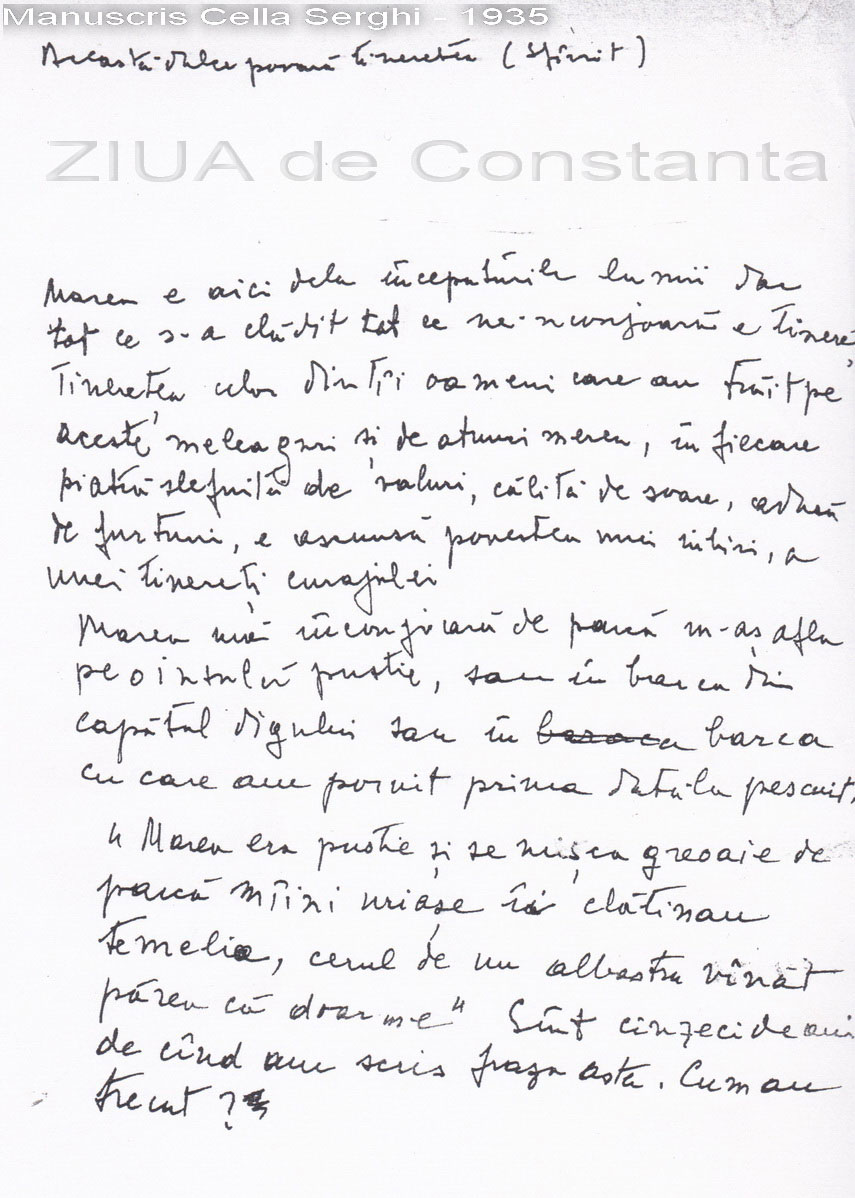 Manuscris Cella Serghi - 1935
Această dulce povară tinerețea (Sfîrșit)
ZIUA de Constanta
Marea e aici dela începuturile lumii dar
tot ce s-a clădit tot ce ne-nconjoară e tinere
Tinerețea celor dintîi oameni care au trăit pe
aceste meleaguri și de atunci mereu, în fiecare
piatră slefuită de valuri, călită de soare, adusă
de furtuni, e ascunsă povestea unei iubiri, a
unei tinereți
Marea mă înconjoară de parcă m-aș afla
pe o insulă pustie, sau în barca din
capătul digului sau în baraca barca
cu care am pornit prima dată la pescuit.
"Marea era pustie și se mișca greoaie de
parcă mîini uriașe îi clătinau
temelia, cerul de un albastru vînăt
părea că doarme" Sînt cinzeci de ani
de cînd am scris fraza asta. Cum au
trecut?